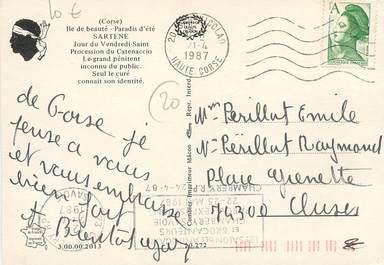 10 €
(Corse)
Ile de beauté - Paradis d'été
SARTENE
Jour du Vendredi-Saint
Procession du Catenaccio
Le grand pénitent
inconnu du public.
Seul le curé
connait son identité.
20
21-4
1987
HAUTE CORSE
A
(20)
de Corse je
pense a vous
et vous embrasse
bien fort
Mr Perillat Emile
Mr Perillat Raymond
Place Grenette
74300 Cluses
Cambier Imprimeur Mâcon
Repr. Interd.
ET BROCANTEURS
CHAMBERY
24-4-87
3.00.00.2013